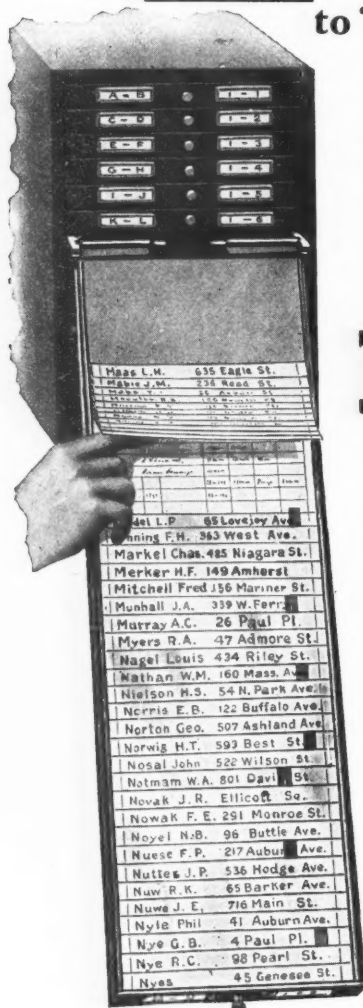 to
A-B 1-1
C-D 1-2
E-F 1-3
G-H 1-4
I-J 1-5
K-L 1-6
Maas L.H. 635 Eagle St.
Mabie J.M. 236 Read St.
del L.P. 65 Lovejoy Ave
nning F.H. 363 West Ave.
Markel Chas. 485 Niagara St.
Merker H.F. 149 Amherst
Mitchell Fred 156 Mariner St.
Munhall J.A. 339 W. Ferry
Murray A.C. 26 Paul Pl.
Myers R.A. 47 Admore St.
Nagel Louis 434 Riley St.
Nathan W.M. 160 Mass. Av
Nielson H.S. 54 N. Park Ave.
Norris E.B. 122 Buffalo Ave.
Norton Geo. 507 Ashland Ave.
Norwig H.T. 593 Best St.
Nosal John 522 Wilson St.
Notmam W.A. 801 Davi St.
Novak J.R. Ellicott Sq.
Nowak F.E. 291 Monroe St.
Noyel N.B. 96 Buttle Ave.
Nuese F.P. 217 Aubur Ave.
Nuttes J.P. 536 Hodge Ave.
Nuw R.K. 65 Barker Ave.
Nuwe J.E. 716 Main St.
Nyle Phil 41 Auburn Ave.
Nye G.B. 4 Paul Pl.
Nye R.C. 98 Pearl St.
Nyes 45 Genesee St.